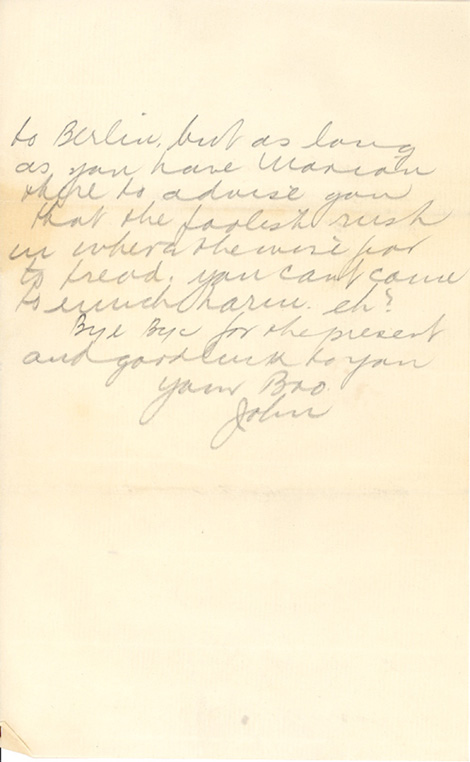 to Berlin, but as long
as you have Marion
there to advise you
that the foolish rush
in where the wise for
to tread, you can't come
to much harm. eh?
Bye Bye for the present
and good luck to you
your Bro.
John